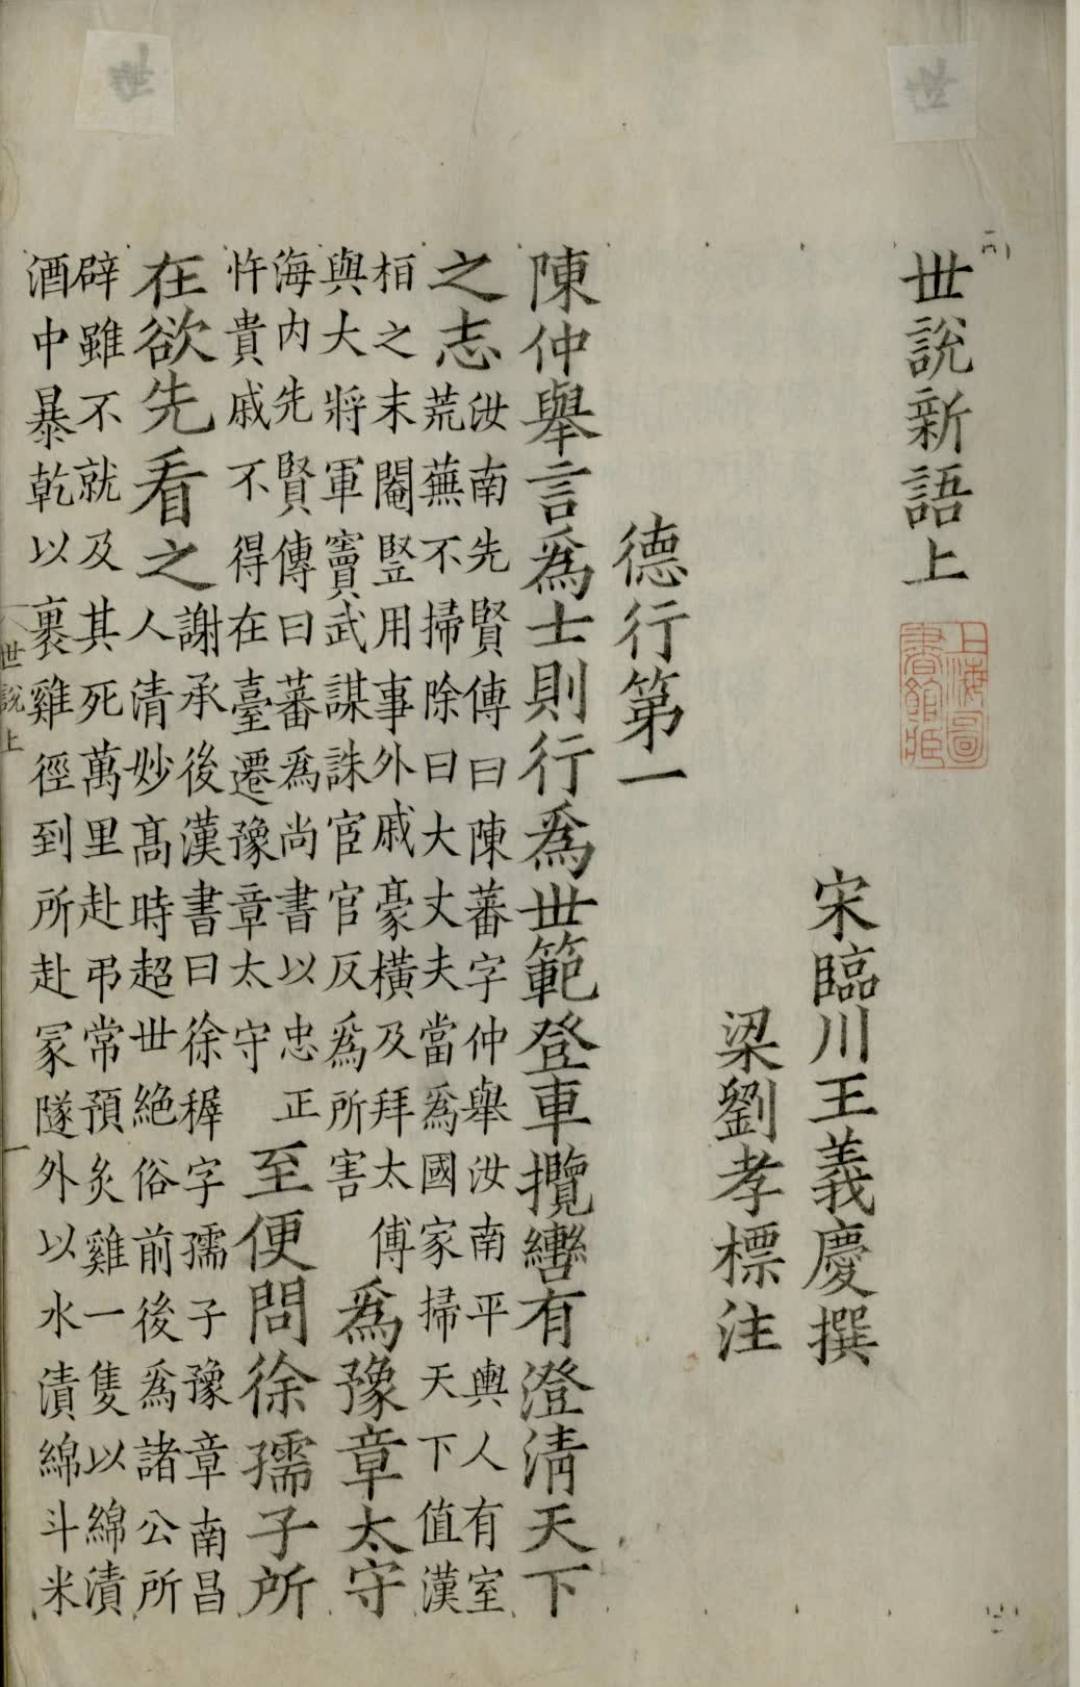 世說新語上
上海圖書館藏
宋臨川王義慶撰
梁劉孝標注
德行第一
陳仲舉言爲士則行爲世範登車攬轡有澄清天下
之志
汝南先賢傳曰陳蕃字仲舉汝南平輿人有室
荒蕪不掃除曰大丈夫當爲國家掃天下值漢
桓之末閹豎用事外戚豪橫及拜太傅
與大將軍竇武謀誅宦官反爲所害
爲豫章太守
海内先賢傳曰蕃爲尚書以忠正
忤貴戚不得在臺遷豫章太守
至便問徐孺子所
在欲先看之
謝承後漢書曰徐穉字孺子豫章南昌
人清妙髙時超世絶俗前後爲諸公所
辟雖不就及其死萬里赴弔常預炙雞一隻以綿漬
酒中暴乾以裹雞徑到所赴冢隧外以水漬綿斗米
世說上
一
世
世